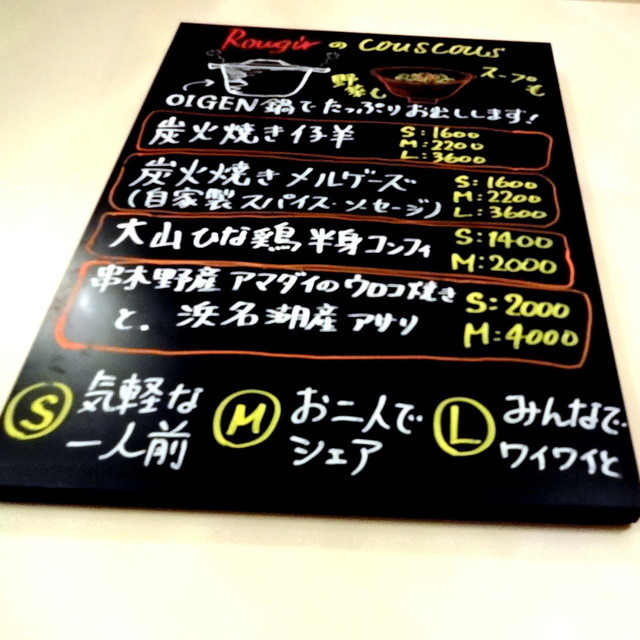 Rougir の couscous
野菜も
スープも
OIGEN鍋でたっぷりお出しします!
炭火焼き仔羊
S:1600
M:2200
L:3600
炭火焼きメルゲーズ
(自家製スパイスソーセージ)
S:1600
M:2200
L:3600
大山ひな鶏半身コンフィ
S:1400
M:2000
串木野産アマダイのウロコ焼き
と、浜名湖産アサリ
S:2000
M:4000
S 気軽な
一人前
M お二人で
シェア
L みんなで
ワイワイと